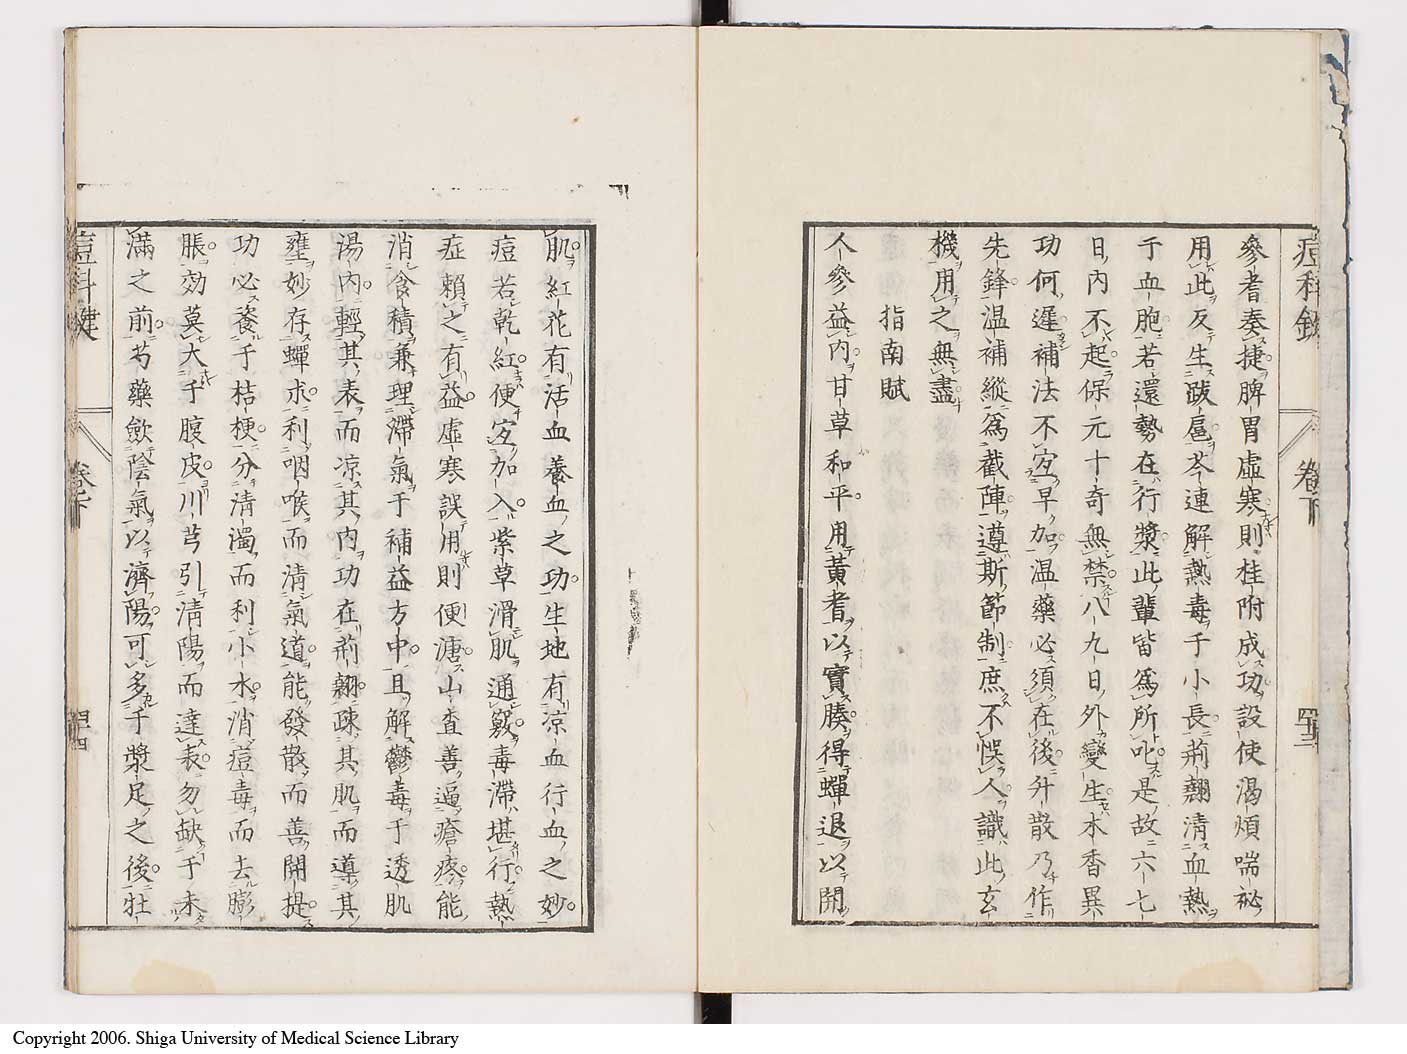 痘科鍵
卷下
四十三
參耆奏捷脾胃虛寒則桂附成功設使渴煩喘祕
用此反生跋扈芩連解熱毒于小長荊翹清血熱
于血胞若還勢在行漿此輩皆爲所叱是故六七
日內不起保元十奇無禁八九日外變生木香異
功何遲補法不宜早加溫藥必須在後升散乃作
先鋒溫補縱爲截陣遵斯節制庶不悞人識此玄
機用之無盡
指南賦
人參益內甘草和平用黃耆以實腠得蟬退以開
肌紅花有活血養血之功生地有凉血行血之妙
痘若乾紅便宜加入紫草滑肌通竅毒滯堪行熱
症賴之有益虛寒誤用則便溏山查善逼瘡疼能
消食積兼理滯氣于補益方中且解鬱毒于透肌
湯內輕其表而凉其內功在荊翹疎其肌而導其
壅妙存蟬求利咽喉而清氣道能發散而善開提
功必資于桔梗分清濁而利小水消痘毒而去膨
脹効莫大于腹皮川芎引清陽而達表勿缺于未
滿之前芍藥歛陰氣以濟陽可多于漿足之後牡
痘科鍵
卷下
四十四
Copyright 2006. Shiga University of Medical Science Library